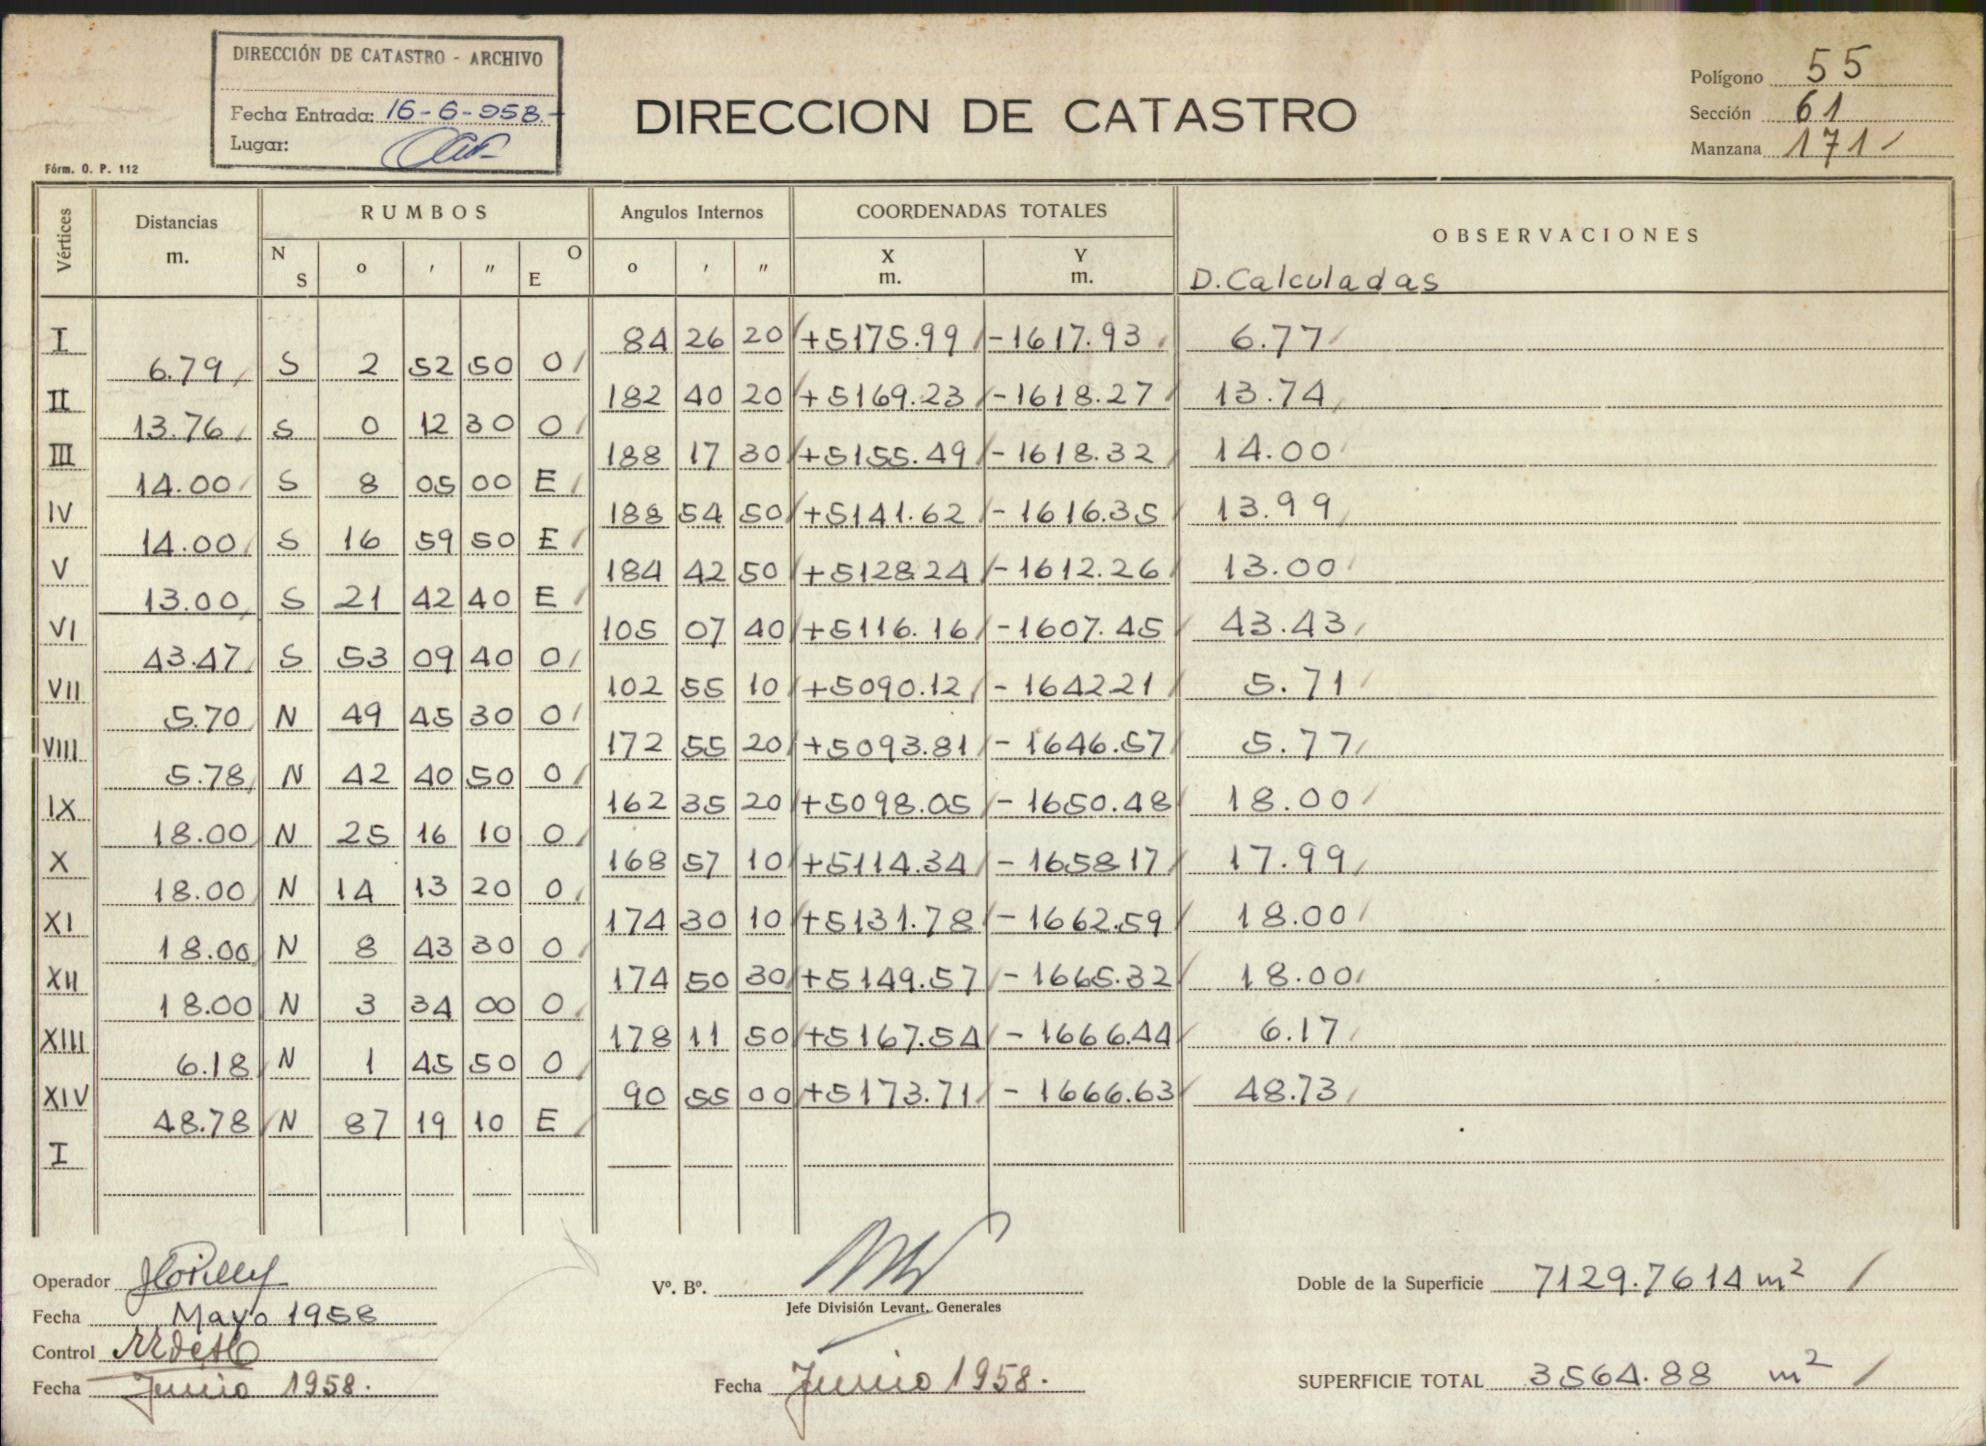 DIRECCIÓN DE CATASTRO - ARCHIVO
Fecha Entrada: 16-6-958.-
Lugar:
Fórm. O. P. 112
DIRECCION DE CATASTRO
Polígono 55
Sección 61
Manzana 171
Vértices Distancias m. RUMBOS Angulos Internos COORDENADAS TOTALES OBSERVACIONES
N S o ' " O E o ' " X m. Y m. D. Calculadas
I 84 26 20 +5175.99 -1617.93 6.77
6.79 S 2 52 50 O
II 182 40 20 +5169.23 -1618.27 13.74
13.76 S 0 12 30 O
III 188 17 30 +5155.49 -1618.32 14.00
14.00 S 8 05 00 E
IV 188 54 50 +5141.62 -1616.35 13.99
14.00 S 16 59 50 E
V 184 42 50 +5128.24 -1612.26 13.00
13.00 S 21 42 40 E
VI 105 07 40 +5116.16 -1607.45 43.43
43.47 S 53 09 40 O
VII 102 55 10 +5090.12 -1642.21 5.71
5.70 N 49 45 30 O
VIII 172 55 20 +5093.81 -1646.57 5.77
5.78 N 42 40 50 O
IX 162 35 20 +5098.05 -1650.48 18.00
18.00 N 25 16 10 O
X 168 57 10 +5114.34 -1658.17 17.99
18.00 N 14 13 20 O
XI 174 30 10 +5131.78 -1662.59 18.00
18.00 N 8 43 30 O
XII 174 50 30 +5149.57 -1665.32 18.00
18.00 N 3 34 00 O
XIII 178 11 50 +5167.54 -1666.44 6.17
6.18 N 1 45 50 O
XIV 90 55 00 +5173.71 -1666.63 48.73
48.78 N 87 19 10 E
I
Operador
Fecha Mayo 1958
Control
Fecha Junio 1958.
Vº. Bº.
Jefe División Levant. Generales
Fecha Junio 1958.
Doble de la Superficie 7129.7614 m²
SUPERFICIE TOTAL 3564.88 m²